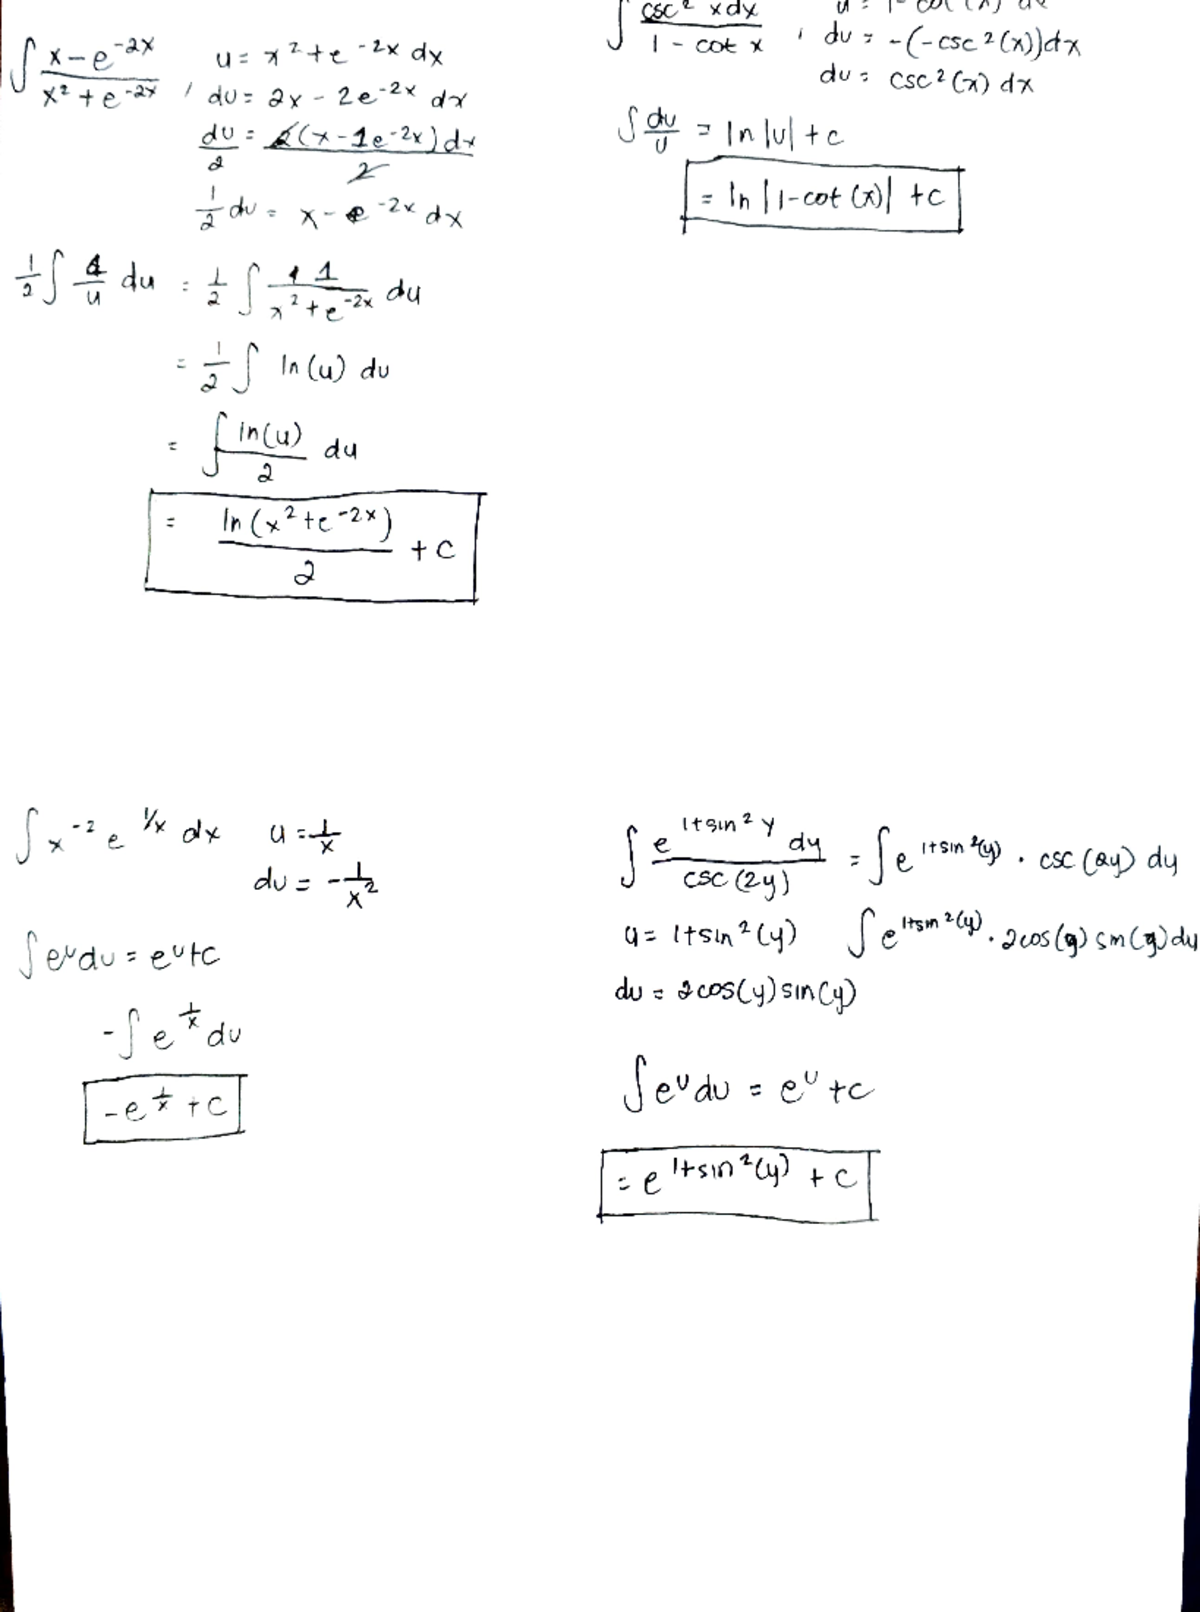 ∫ x-e^-2x / x² + e^-2x , u = x² + e^-2x dx
du = 2x - 2e^-2x dx
du/2 = 2(x-1e^-2x)dx / 2
1/2 du = x - e^-2x dx
1/2 ∫ 1/u du = 1/2 ∫ 1 / x² + e^-2x du
= 1/2 ∫ ln(u) du
= ∫ ln(u)/2 du
= ln(x²+e^-2x) / 2 + c
∫ csc² x dx / 1 - cot x , du = -(-csc²(x))dx
du = csc²(x) dx
∫ du/u = ln|u| + c
= ln|1-cot(x)| + c
∫ x^-2 e^1/x dx u = 1/x
du = -1/x²
∫ e^u du = e^u + c
-∫ e^1/x du
-e^1/x + c
∫ e^1+sin² y dy / csc(2y) = ∫ e^1+sin²(y) · csc(2y) dy
u = 1+sin²(y) ∫ e^1+sin²(y) · 2cos(y) sin(y) dy
du = 2cos(y) sin(y)
∫ e^u du = e^u + c
= e^1+sin²(y) + c